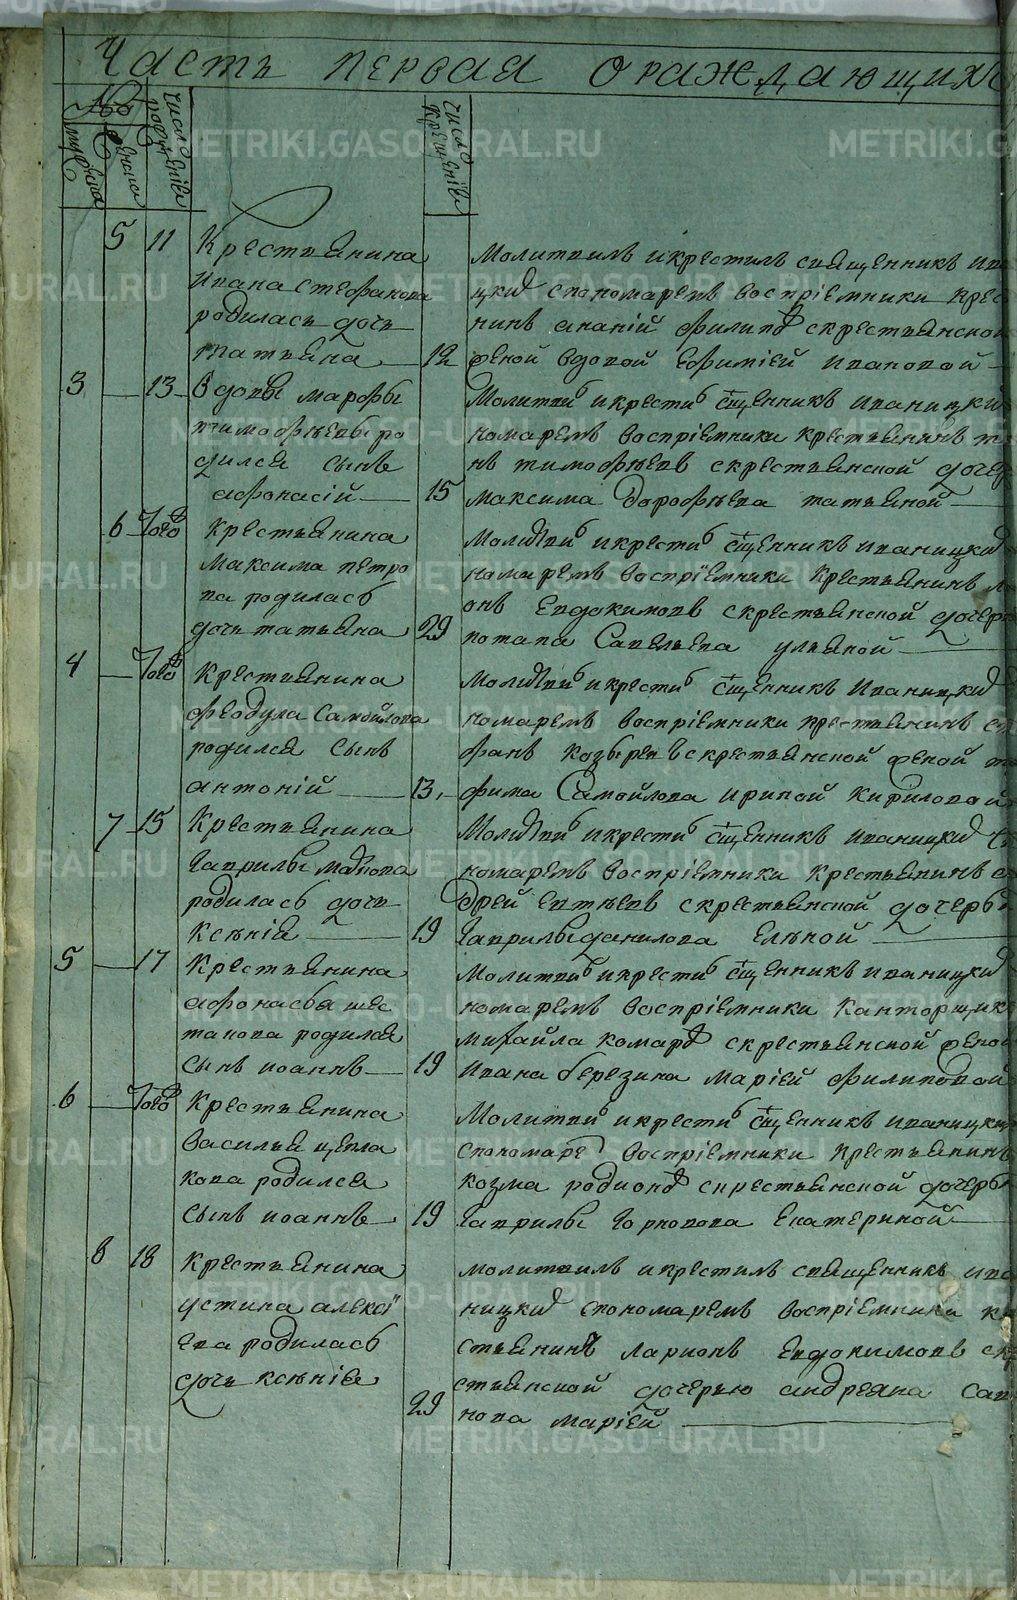 Часть первая ораждающихс
№
мужеска
женска
число рожденiѧ
число крещенiѧ
5 11 Крестьянина
Ивана Стефанова
родилась дочь
татьяна 12
молитвилъ икрестилъ священникъ ива
ницкий спономаремъ воспрiемники крес
нинъ ананiй филипов скрестьянской
женой вдовой Ефимiей ивановой
3 13 вдовы марфы
тимофѣевы ро
дился сынъ
афонасiй 15
молитви икрести сщенникъ иваницкий
номаремъ воспрiемники крестьянинъ
нъ тимофѣевъ скрестьянской дочер
максима дорофѣева татьяной
6 Того крестьянина
максима петро
ва родилась
дочь татьяна 29
молитви икрести сщенникъ иваницкий
номаремъ воспрiемники крестьянинъ
онъ Евдокимовъ скрестьянской дочер
потапа Савельева ульяной
4 Того крестьянина
феодула Самойлова
родился сынъ
антонiй 13
молитви икрести сщенникъ иваницкий
номаремъ воспрiемники крестьянинъ
фанъ козыревъ скрестьянской женой
фима Самойлова ириной кириловой
7 15 Крестьянина
гаврилы
родилась дочь
Ксѣнiя 19
молитви икрести сщенникъ иваницкий
номаремъ воспрiемники крестьянинъ
дрей Евтѣевъ скрестьянской дочерью
гаврилы данилова Елѣной
5 17 Крестьянина
афонасья шес
такова родился
сынъ иоаннъ 19
молитви икрести сщенникъ иваницкий
номаремъ воспрiемники канторщик
михайла комаров скрестьянской женой
ивана березина марiей филиповой
6 Того крестьянина
василья щепла
кова родился
сынъ иоаннъ 19
молитви икрести сщенникъ иваницкий
спономаре воспрiемники крестьянинъ
козма родионов скрестьянской дочерью
гаврилы Екатериной
8 18 крестьянина
устина алексi
ева родилась
дочь ксѣнiя 29
молитвилъ икрестилъ священникъ ива
ницкий спономаремъ воспрiемники к
стьянинъ ларионъ Евдокимовъ
стьянской дочерью андреяна
нова марiей
METRIKI.GASO-URAL.RU